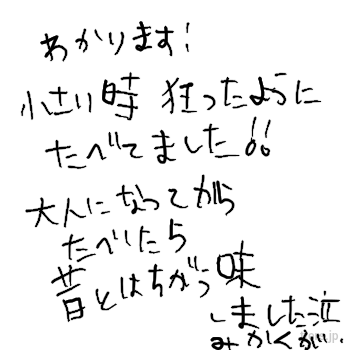 わかります!
小さい時 狂ったように
たべてました!!
大人になってから
たべたら
昔とはちがう味
しました泣
みかくが...